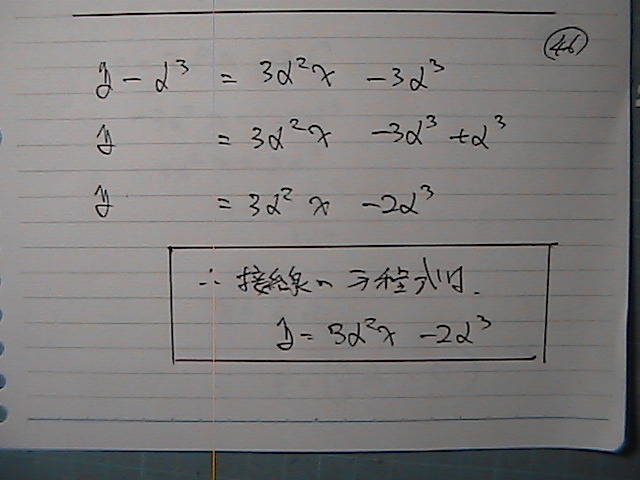 46
y - α³ = 3α²x - 3α³
y = 3α²x - 3α³ + α³
y = 3α²x - 2α³
∴ 接線の方程式は.
y = 3α²x - 2α³